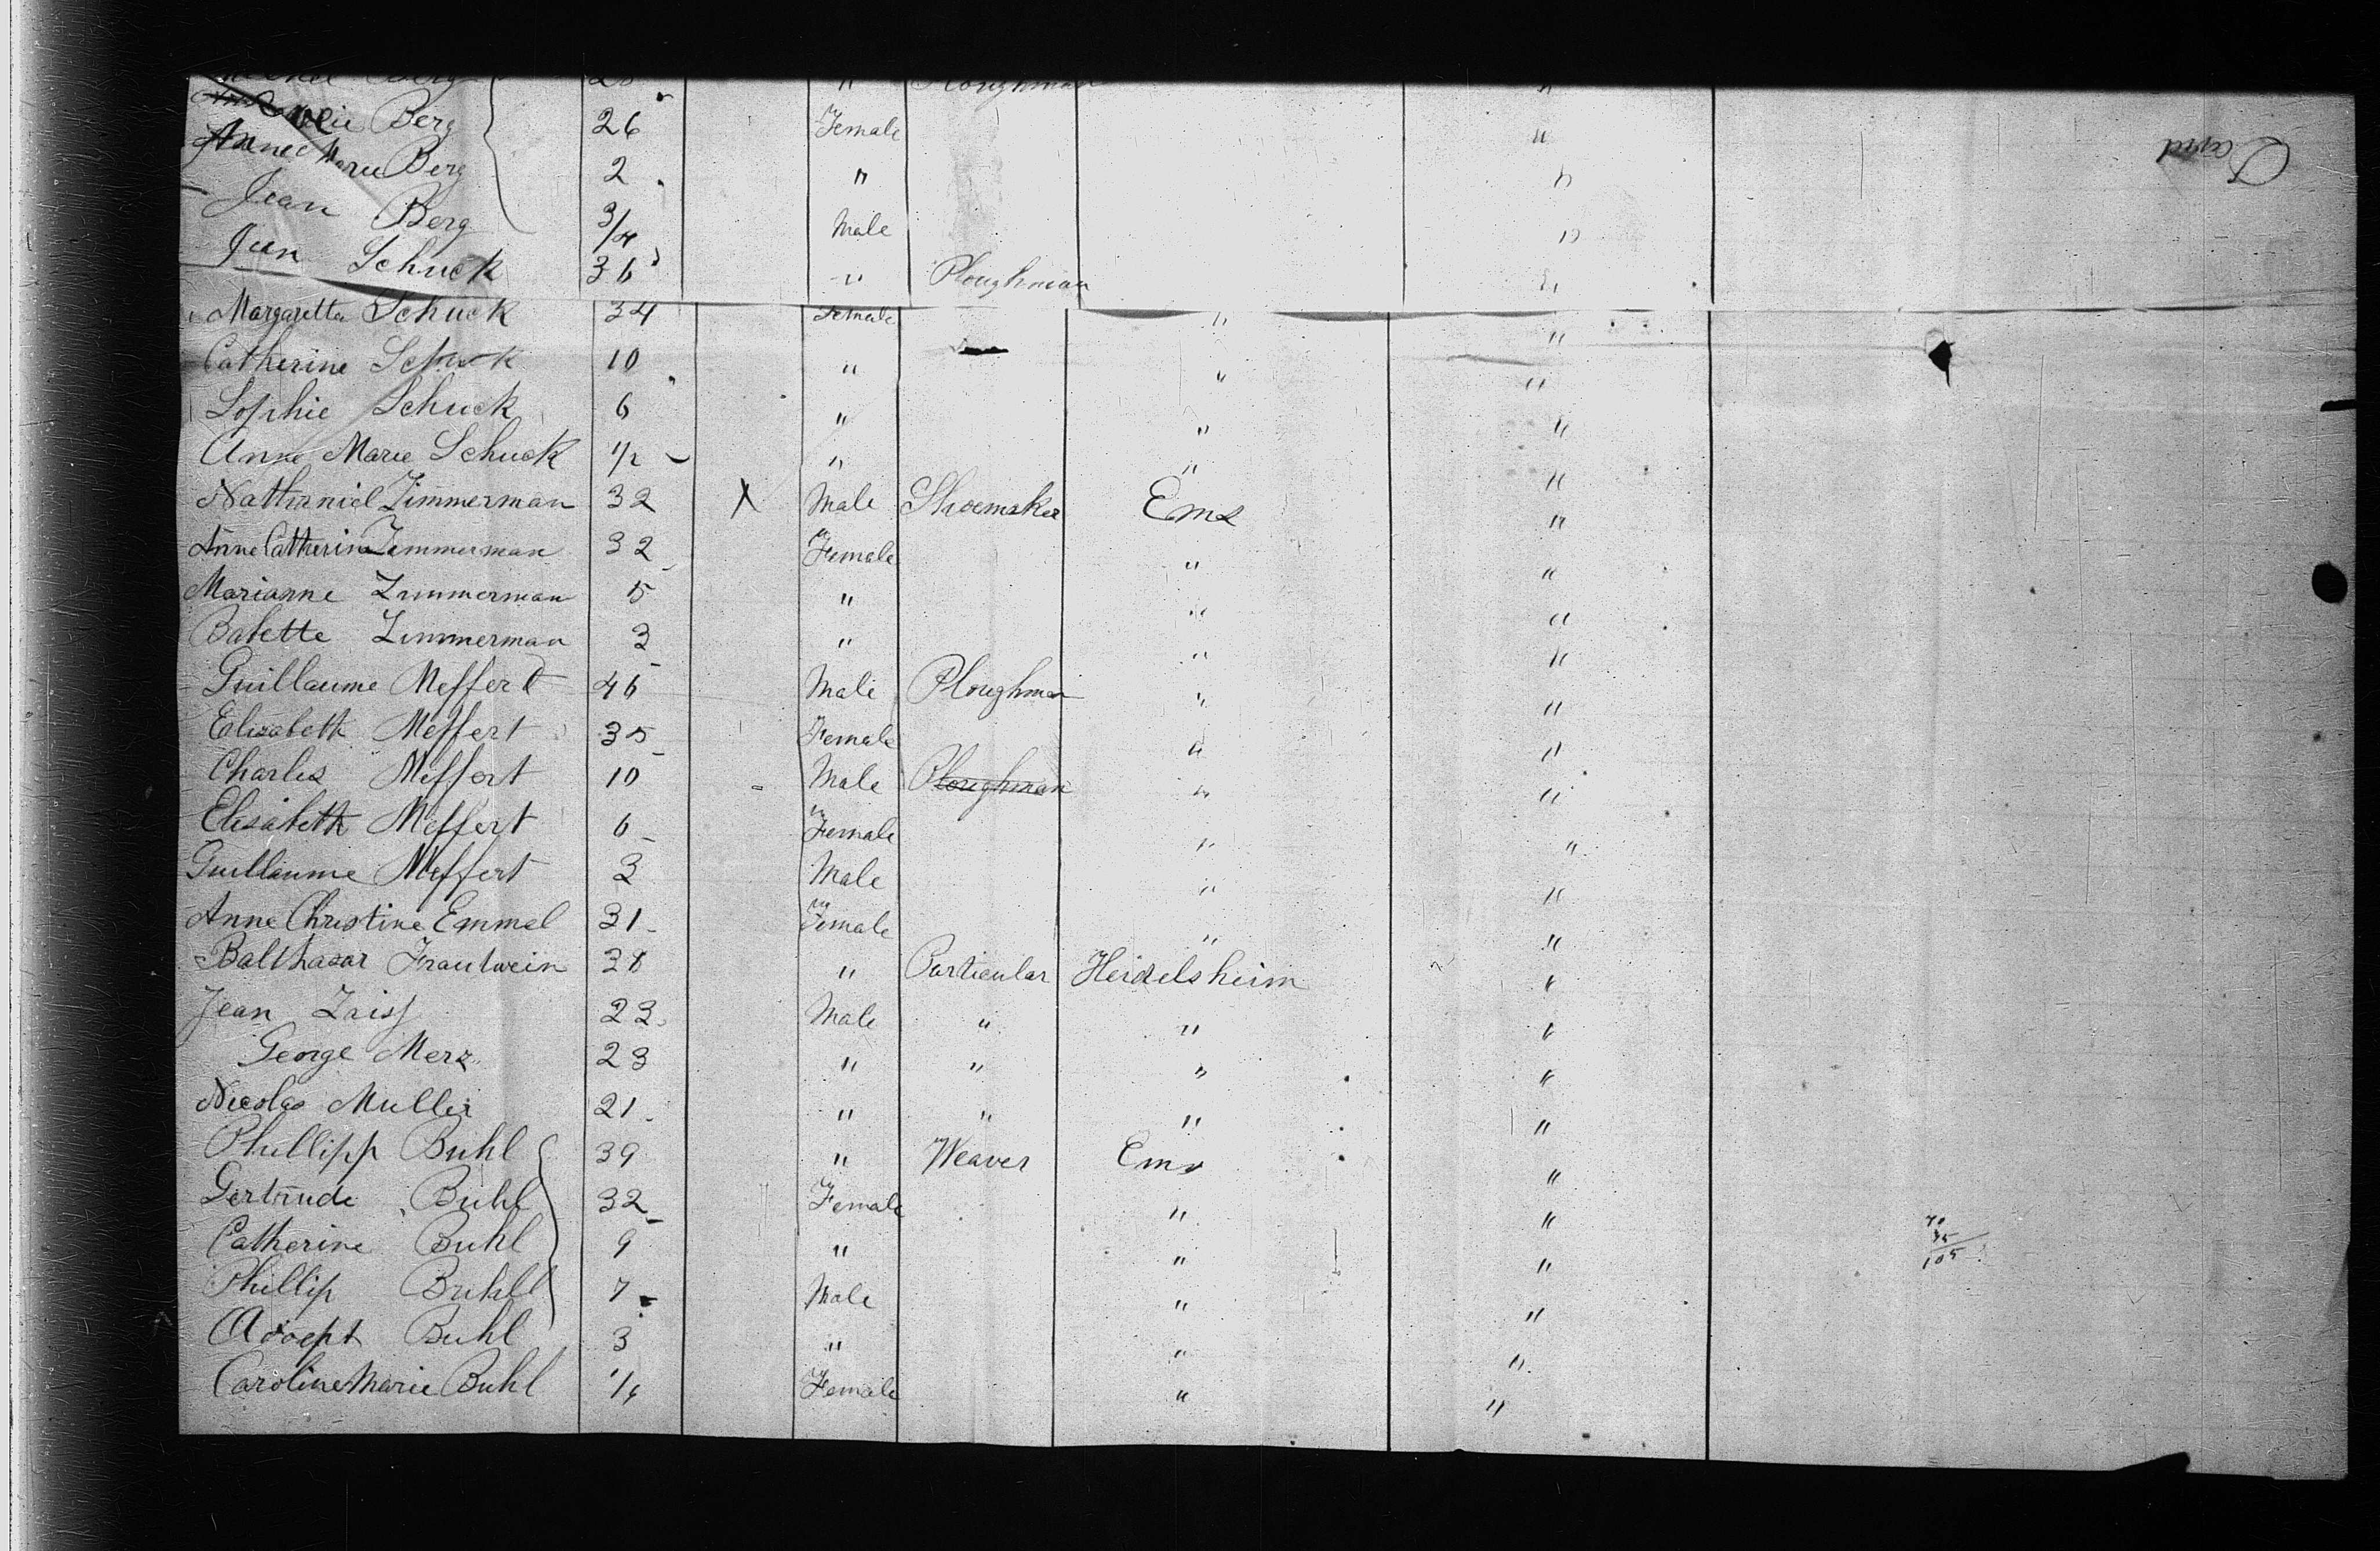 Berg 28 " Ploughman "
Marie Berg 26 Female "
Anne Marie Berg 2 " "
Jean Berg 3/4 Male "
Jean Schuck 36 " Ploughman "
Margaretta Schuck 34 Female " "
Catherine Schuck 10 " " "
Sophie Schuck 6 " " "
Anne Marie Schuck 1/2 " " "
Nathaniel Zimmerman 32 X Male Shoemaker Ems "
Anne Catherine Zimmerman 32 Female " "
Marianne Zimmerman 5 " " "
Babette Zimmerman 3 " " "
Guillaume Meffert 46 Male Ploughman " "
Elisabeth Meffert 35 Female " "
Charles Meffert 10 Male Ploughman " "
Elisabeth Meffert 6 Female " "
Guillaume Meffert 3 Male " "
Anne Christine Emmel 31 Female " "
Balthasar Trautwein 38 " Particular Heidelsheim "
Jean Zaiss 23 Male " " "
George Merz 23 " " " "
Nicolas Muller 21 " " " "
Phillipp Buhl 39 " Weaver Ems "
Gertrude Buhl 32 Female " "
Catherine Buhl 9 " " "
Phillip Buhl 7 Male " "
Buhl 3 " " "
Caroline Marie Buhl 1/4 Female " "
David
70
35
105